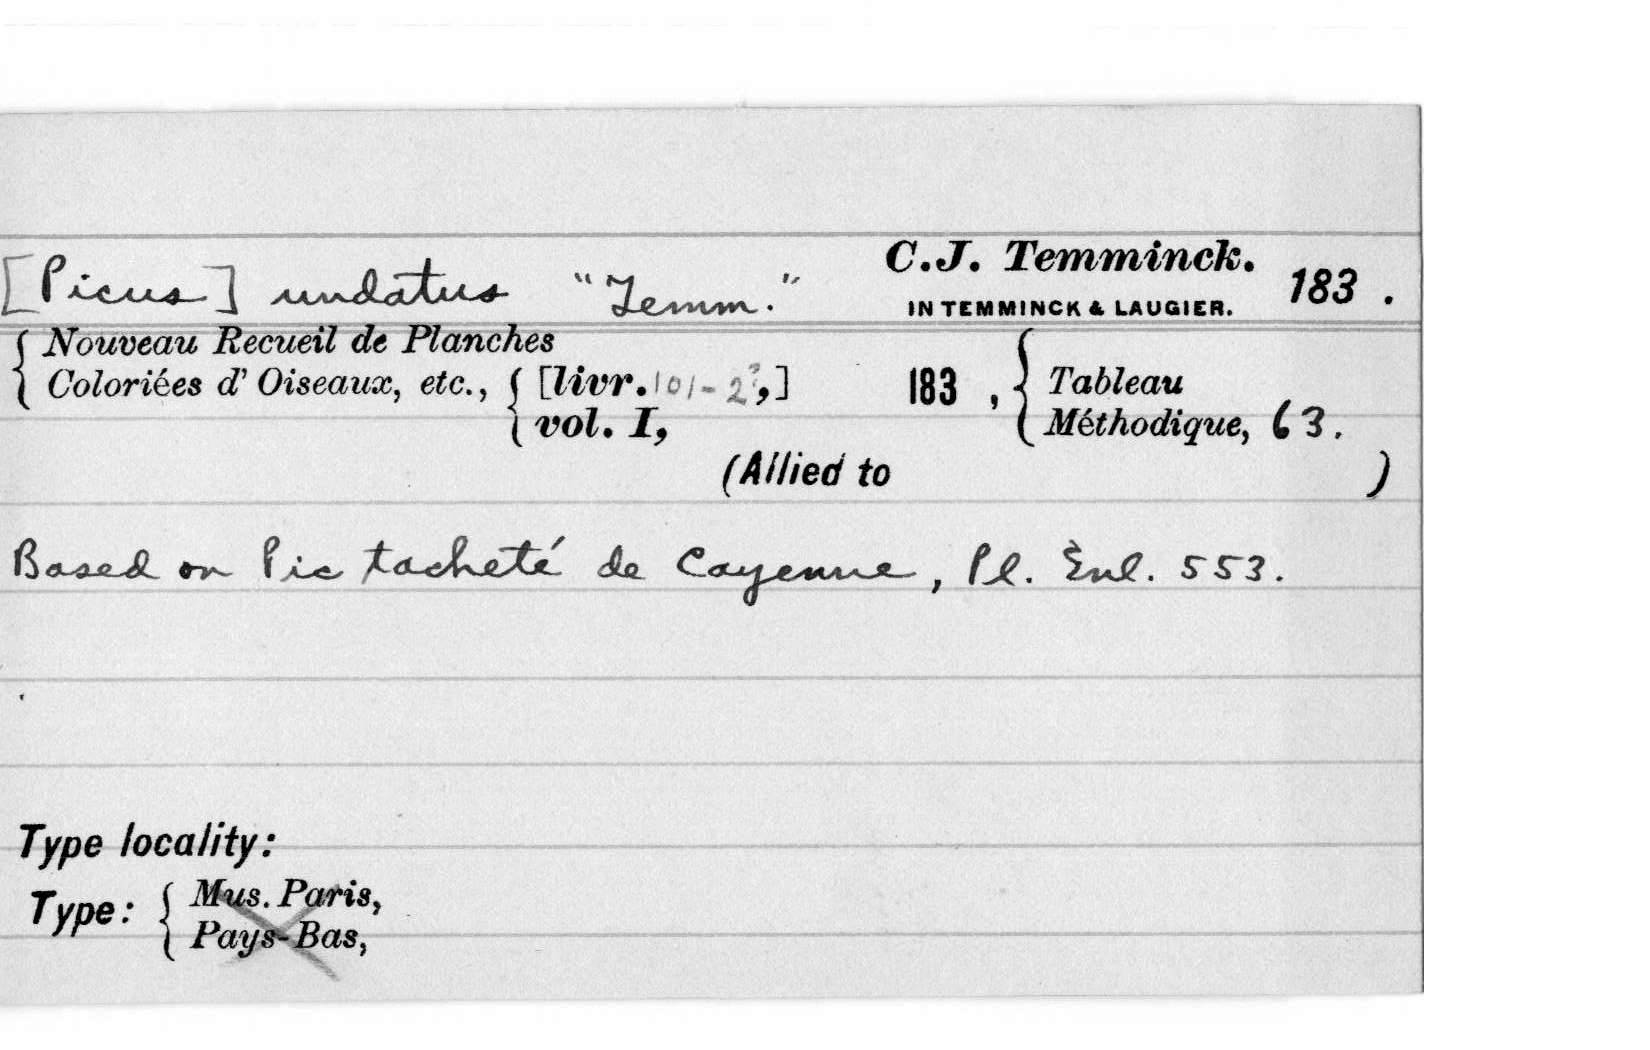 [Picus] undatus "Temm." C.J. Temminck. 183 .
IN TEMMINCK & LAUGIER.
{ Nouveau Recueil de Planches
Coloriées d' Oiseaux, etc., { [livr. 101-2?,] 183 , { Tableau
vol. I, Méthodique, 63.
(Allied to )
Based on Pic tacheté de Cayenne, Pl. Enl. 553.
Type locality:
Type: { Mus. Paris,
Pays-Bas,